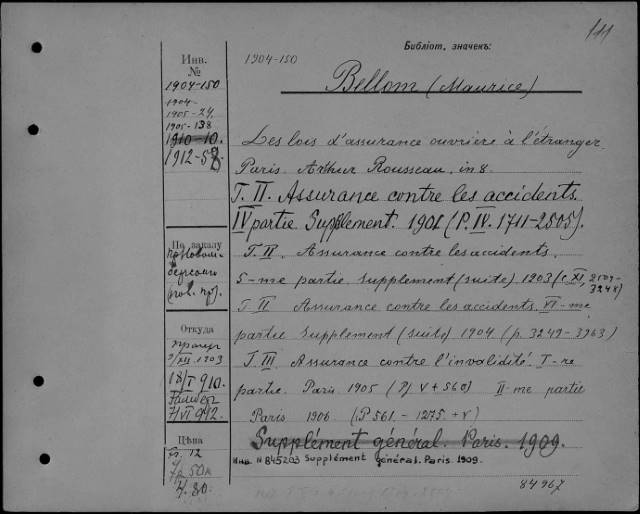 111
Библіот. значекъ:
Инв. №
1904-150
1904-150
Bellom (Maurice)
1904-
1905-24
1905-138
1910-10.
1912-58
Les lois d'assurance ouvrière à l'étranger.
Paris. Arthur Rousseau. in 8.
T. II. Assurance contre les accidents.
IV partie. Supplement. 1901 (P. IV. 1711-2505).
T. II. Assurance contre les accidents.
5-me partie. Supplement (suite) 1903 (c XI, 2509-3248)
T. II Assurance contre les accidents. VI-me
partie Supplement (suite) 1904 (p. 3249-3963)
T. III Assurance contre l'invalidité. I-re
partie. Paris 1905 (Pf V+560) II-me partie
Paris 1906. (P 561.-1275.+V)
Supplément général. Paris. 1909.
Инв. N 845203 Supplément général. Paris. 1909.
84967
По заказу
Откуда
18/I 910.
7/VI 912.
Цѣна
Fr. 12
7р 50к
4.80